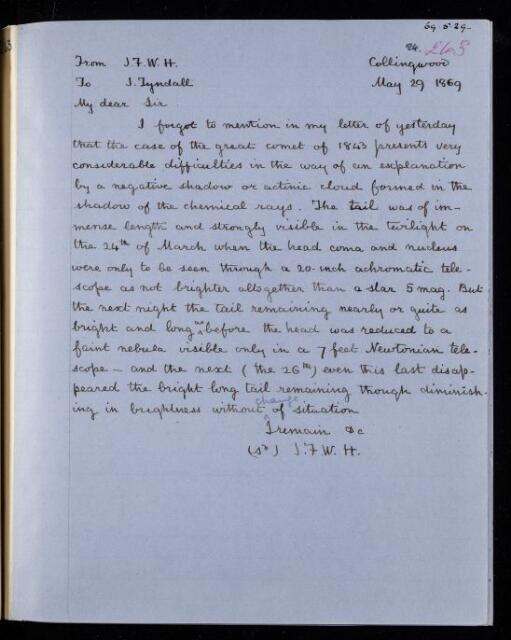 69.5.29
24. 263
From J. F. W. H. Collingwood
To J. Tyndall May 29 1869
My dear Sir
I forgot to mention in my letter of yesterday
that the case of the great comet of 1843 presents very
considerable difficulties in the way of an explanation
by a negative shadow or actinic cloud formed in the
shadow of the chemical rays. The tail was of im-
mense length and strongly visible in the twilight on
the 24th of March when the head coma and nucleus
were only to be seen through a 20-inch achromatic tele-
scope as not brighter altogether than a star 5 mag. But
the next night the tail remaining nearly or quite as
bright and long as before the head was reduced to a
faint nebula visible only in a 7 feet Newtonian tele-
scope – and the next (the 26th) even this last disap-
peared the bright long tail remaining though diminish-
ing in brightness without change of situation
I remain &c
(sd) J. F. W. H.